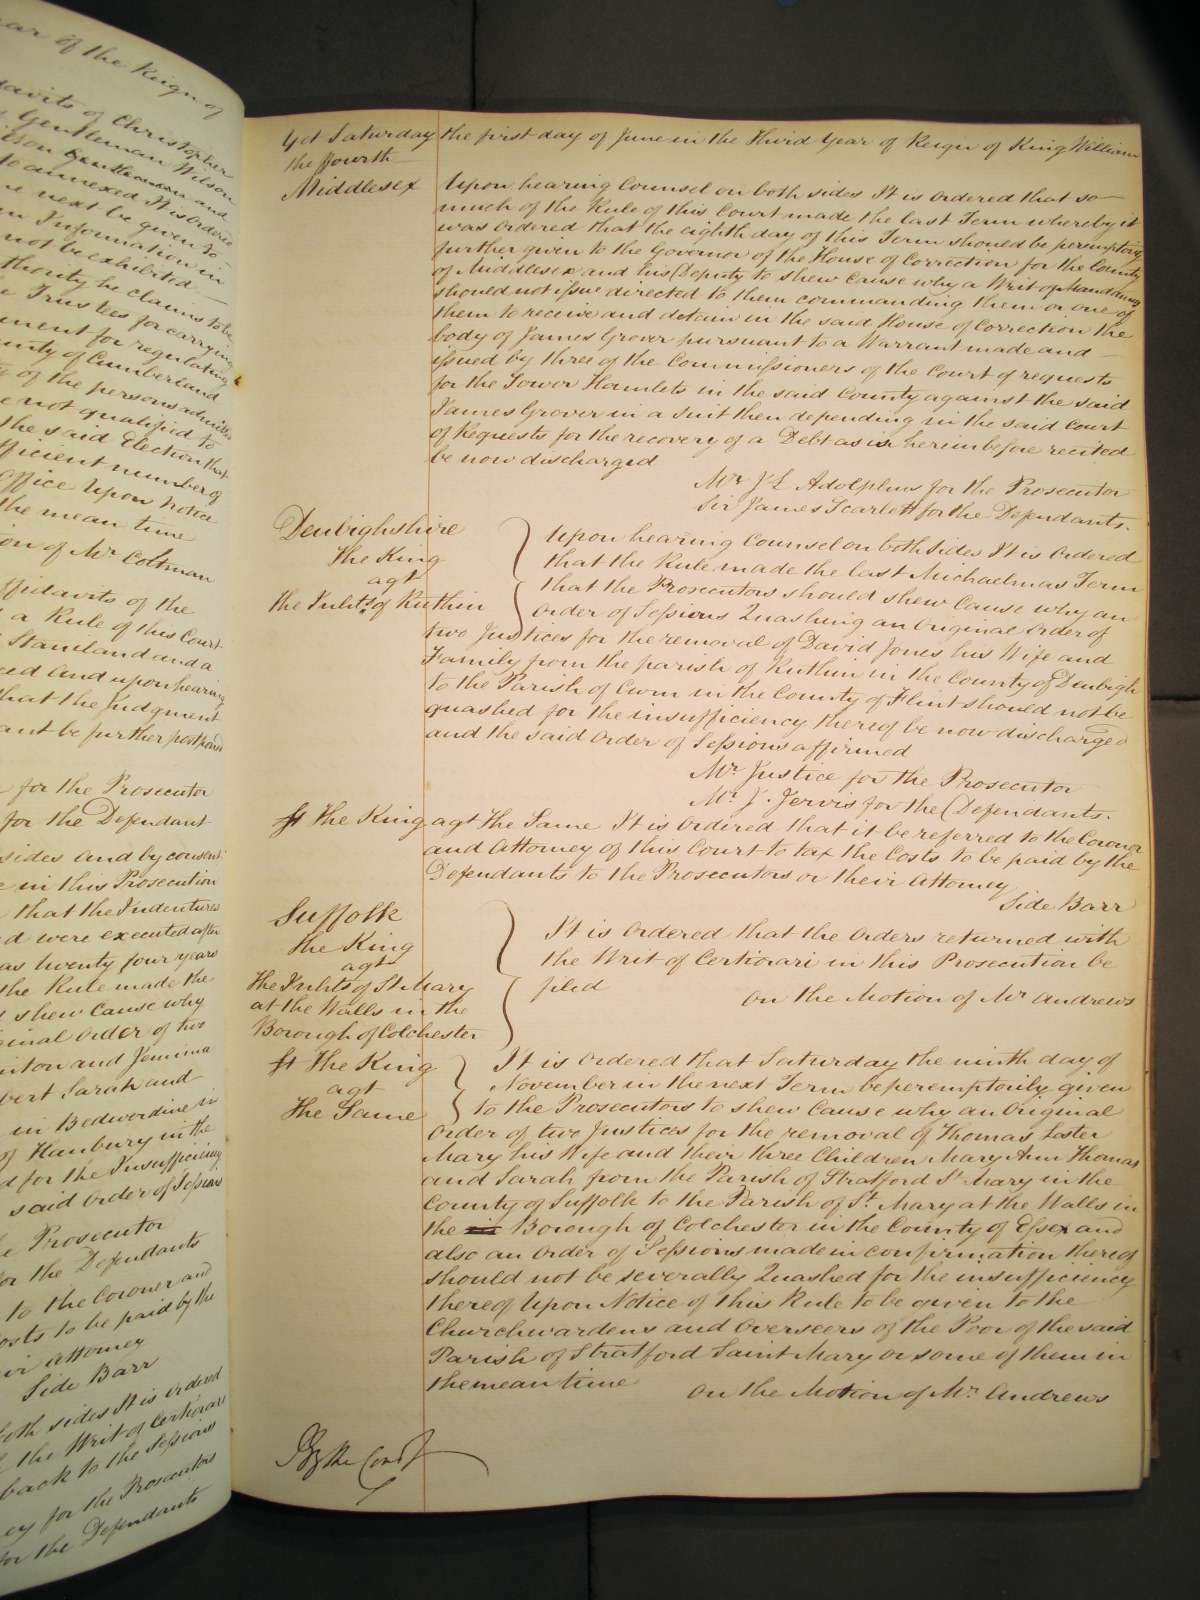 ear of the Reign of
davits of Christopher
Gentleman Wilson
Gentleman and
to annexed It is Ordered
next be given to
Information in
not be exhibited
thority he claims to be
Trustees for carrying
ment for regulating
unty of Cumberland
of the persons admitted
not qualified to
the said Election that
fficient number of
Office Upon Notice
the mean time
on of Mr. Coltman
ffidavits of the
a Rule of this Court
Staniland and a
ced And upon hearing
that the Judgment
ant be further postponed
for the Prosecutor
for the Defendant
sides and by consent
in this Prosecution
that the Indentures
d were executed after
as twenty four years
the Rule made the
shew Cause why
ginal order of two
nton and Jemima
bert Sarah and
in Bedwardine in
of Hanbury in the
d for the Insufficiency
said order of Sessions
Prosecutor
for the Defendants
to the Coroner and
osts to be paid by the
ir Attorney
Side Barr
both sides It is ordered
the Writ of Certiorari
back to the Sessions
ey for the Prosecutors
for the Defendants
Yet Saturday the first day of June in the Third Year of Reign of King William
the fourth
Middlesex Upon hearing Counsel on both sides It is Ordered that so
much of the Rule of this Court made the last Term whereby it
was Ordered that the eighth day of this Term should be peremptorily
further given to the Governor of the House of Correction for the County
of Middlesex and his Deputy to shew Cause why a Writ of Mandamus
should not issue directed to them commanding them or one of
them to receive and detain in the said House of Correction the
body of James Grover pursuant to a Warrant made and
issued by three of the Commissioners of the Court of requests
for the Tower Hamlets in the said County against the said
James Grover in a Suit then depending in the said Court
of Requests for the recovery of a Debt as is hereinbefore recited
be now discharged
Mr. J L Adolphus for the Prosecutor
Sir James Scarlett for the Defendants.
Denbighshire
The King
agt
the Inhts. of Ruthin
Upon hearing Counsel on both sides It is Ordered
that the Rule made the last Michaelmas Term
that the Prosecutors should shew Cause why an
Order of Sessions Quashing an Original Order of
two Justices for the removal of David Jones his Wife and
Family from the parish of Ruthin in the County of Denbigh
to the Parish of Cwm in the County of Flint should not be
quashed for the insufficiency thereof be now discharged
and the said Order of Sessions affirmed
Mr. Justice for the Prosecutor
Mr. J. Jervis for the Defendants.
St The King agt The Same It is Ordered that it be referred to the Coroner
and Attorney of this Court to tax the Costs to be paid by the
Defendants to the Prosecutors or their Attorney
Side Barr
Suffolk
The King
agt
The Inhts of St Mary
at the Walls in the
Borough of Colchester
It is Ordered that the Orders returned with
the Writ of Certiorari in this Prosecution be
filed
On the Motion of Mr Andrews
St The King
agt
The Same
It is Ordered that Saturday the ninth day of
November in the next Term be peremptorily given
to the Prosecutors to shew Cause why an Original
Order of two Justices for the removal of Thomas Laster
Mary his Wife and their three Children Mary Ann Thomas
and Sarah from the Parish of Stratford St Mary in the
County of Suffolk to the Parish of St. Mary at the Walls in
the Borough of Colchester in the County of Essex and
also an Order of Sessions made in confirmation thereof
should not be severally Quashed for the insufficiency
thereof Upon Notice of this Rule to be given to the
Churchwardens and Overseers of the Poor of the said
Parish of Stratford Saint Mary or some of them in
the mean time
On the Motion of Mr. Andrews
By the Court